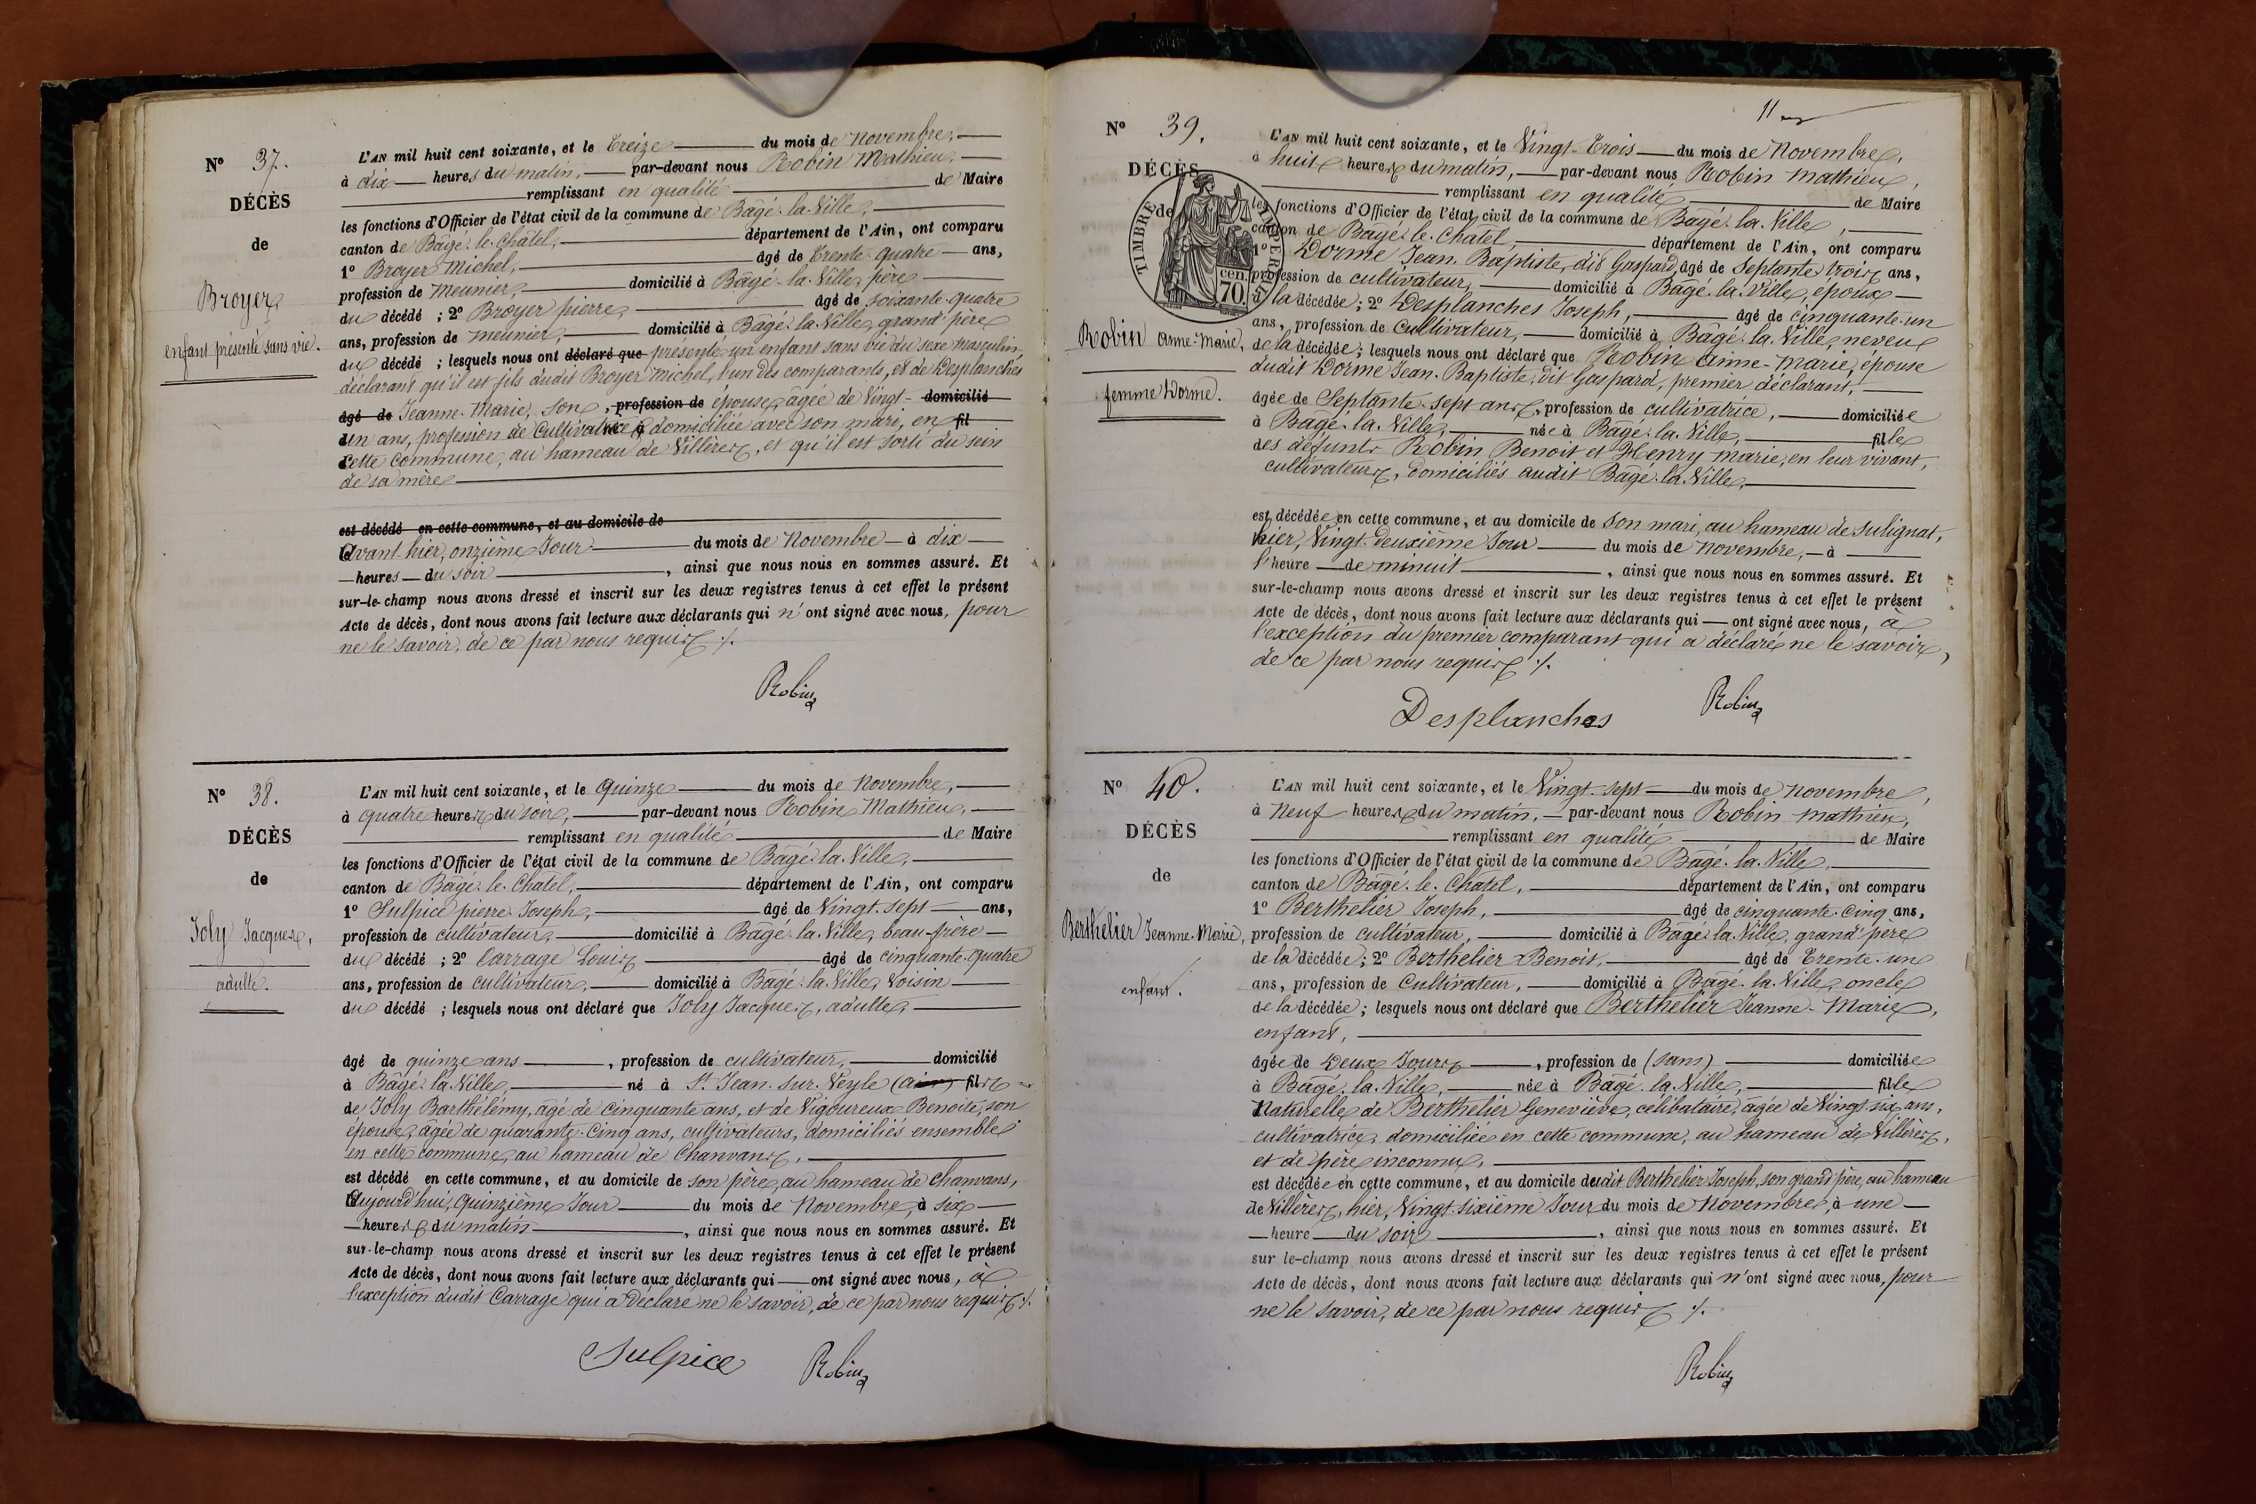 N° 37.
DÉCÈS
de
Broyer
enfant présenté sans vie.
L'AN mil huit cent soixante, et le treize du mois de Novembre,
à dix heures du matin, par-devant nous Robin Mathieu,
remplissant en qualité de Maire
les fonctions d'Officier de l'état civil de la commune de Bâgé-la-Ville,
canton de Bâgé-le-Châtel, département de l'Ain, ont comparu
1° Broyer Michel, âgé de trente-quatre ans,
profession de meunier, domicilié à Bâgé-la-Ville, père
du décédé ; 2° Broyer pierre âgé de soixante-quatre
ans, profession de meunier, domicilié à Bâgé-la-Ville, grand'père
du décédé ; lesquels nous ont déclaré que présenté un enfant sans vie du sexe masculin
déclarant qu'il est fils dudit Broyer Michel, l'un des comparants, et de Desplanches
âgé de Jeanne-Marie, son, profession de épouse, âgée de Vingt- domicilié
un ans, profession de Cultivatrice à domiciliée avec son mari, en fil
cette commune, au hameau de Villères, et qu'il est sorti du sein
de sa mère
est décédé en cette commune, et au domicile de
Avant hier, onzième Jour du mois de Novembre à dix
heures du soir, ainsi que nous nous en sommes assuré. Et
sur-le-champ nous avons dressé et inscrit sur les deux registres tenus à cet effet le présent
Acte de décès, dont nous avons fait lecture aux déclarants qui n'ont signé avec nous, pour
ne le savoir, de ce par nous requis ./.
Robin
N° 38.
DÉCÈS
de
Joly Jacques,
adulte.
L'AN mil huit cent soixante, et le quinze du mois de Novembre,
à quatre heures du soir, par-devant nous Robin Mathieu,
remplissant en qualité de Maire
les fonctions d'Officier de l'état civil de la commune de Bâgé-la-Ville,
canton de Bâgé-le-Châtel, département de l'Ain, ont comparu
1° Sulpice pierre Joseph, âgé de Vingt-sept ans,
profession de cultivateur, domicilié à Bâgé-la-Ville, beau-frère
du décédé ; 2° Carrage Louis âgé de cinquante-quatre
ans, profession de cultivateur, domicilié à Bâgé-la-Ville, Voisin
du décédé ; lesquels nous ont déclaré que Joly Jacques, adulte,
âgé de quinze ans, profession de cultivateur, domicilié
à Bâgé-la-Ville, né à St Jean-sur-Veyle (ain) fils
de Joly Barthélémy, âgé de cinquante ans, et de Vigoureux Benoite, son
épouse, âgée de quarante-Cinq ans, cultivateurs, domiciliés ensemble
en cette commune, au hameau de Chanvans,
est décédé en cette commune, et au domicile de son père, au hameau de chanvans,
Aujourd'hui, Quinzième Jour du mois de Novembre, à six
heures du matin, ainsi que nous nous en sommes assuré. Et
sur-le-champ nous avons dressé et inscrit sur les deux registres tenus à cet effet le présent
Acte de décès, dont nous avons fait lecture aux déclarants qui ont signé avec nous, à
l'exception dudit Carrage qui a déclaré ne le savoir, de ce par nous requis ./.
Sulpice Robin
11
N° 39.
DÉCÈS
de
TIMBRE IMPÉRIAL
70 cen.
Robin Anne-Marie,
femme Dorme.
L'AN mil huit cent soixante, et le Vingt-Trois du mois de Novembre,
à huit heures du matin, par-devant nous Robin Mathieu,
remplissant en qualité de Maire
les fonctions d'Officier de l'état civil de la commune de Bâgé-la-Ville,
canton de Bâgé-le-Châtel, département de l'Ain, ont comparu
1° Dorme Jean-Baptiste, dit Gaspard, âgé de Septante trois ans,
profession de cultivateur, domicilié à Bâgé-la-Ville, époux
la décédée ; 2° Desplanches Joseph, âgé de cinquante-un
ans, profession de Cultivateur, domicilié à Bâgé-la-Ville, neveu
de la décédée ; lesquels nous ont déclaré que Robin Anne-Marie, épouse
dudit Dorme Jean-Baptiste, dit Gaspard, premier déclarant,
âgée de Septante-sept ans, profession de cultivatrice, domiciliée
à Bâgé-la-Ville, née à Bâgé-la-Ville, fille
des défunts Robin Benoit et Henry Marie, en leur vivant,
cultivateurs, domiciliés audit Bâgé-la-Ville,
est décédée en cette commune, et au domicile de son mari, au hameau de Sulignat,
hier, Vingt-deuxième Jour du mois de Novembre, à
l'heure de minuit, ainsi que nous nous en sommes assuré. Et
sur-le-champ nous avons dressé et inscrit sur les deux registres tenus à cet effet le présent
Acte de décès, dont nous avons fait lecture aux déclarants qui ont signé avec nous, à
l'exception du premier comparant qui a déclaré ne le savoir,
de ce par nous requis ./.
Desplanches Robin
N° 40.
DÉCÈS
de
Berthelier Jeanne-Marie,
enfant.
L'AN mil huit cent soixante, et le Vingt-sept du mois de Novembre,
à Neuf heures du matin, par-devant nous Robin Mathieu,
remplissant en qualité de Maire
les fonctions d'Officier de l'état civil de la commune de Bâgé-la-Ville,
canton de Bâgé-le-Châtel, département de l'Ain, ont comparu
1° Berthelier Joseph, âgé de cinquante-Cinq ans,
profession de cultivateur, domicilié à Bâgé-la-Ville, grand'père
de la décédée ; 2° Berthelier Benoit, âgé de Trente-un
ans, profession de Cultivateur, domicilié à Bâgé-la-Ville, oncle
de la décédée ; lesquels nous ont déclaré que Berthelier Jeanne-Marie,
enfant,
âgée de Deux Jours, profession de (sans) domiciliée
à Bâgé-la-Ville, née à Bâgé-la-Ville, fille
Naturelle de Berthelier Geneviève, célibataire, âgée de Vingt-six ans,
cultivatrice, domiciliée en cette commune, au hameau de Villères,
et de père inconnu,
est décédée en cette commune, et au domicile dudit Berthelier Joseph, son grand'père, au hameau
de Villères, hier, Vingt-sixième Jour du mois de Novembre, à une
heure du soir, ainsi que nous nous en sommes assuré. Et
sur le-champ nous avons dressé et inscrit sur les deux registres tenus à cet effet le présent
Acte de décès, dont nous avons fait lecture aux déclarants qui n'ont signé avec nous, pour
ne le savoir, de ce par nous requis ./.
Robin